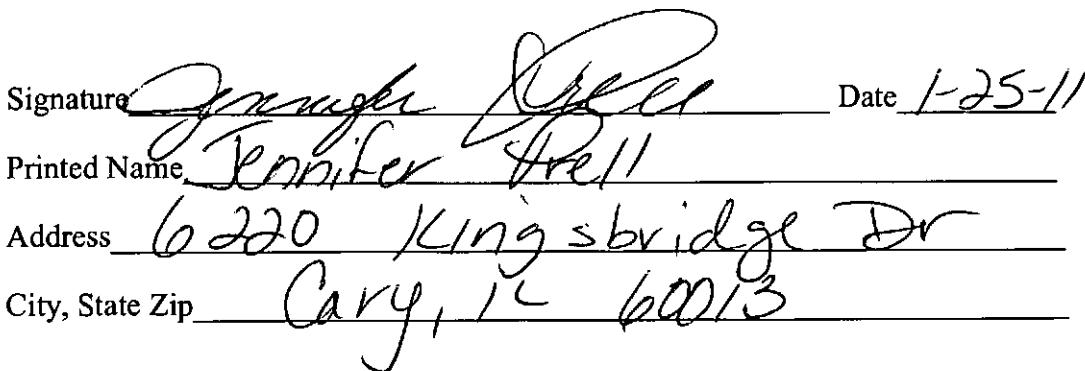 Signature Jennifer Prell Date 1-25-11
Printed Name Jennifer Prell
Address 6220 Kingsbridge Dr
City, State Zip Cary, IL 60013